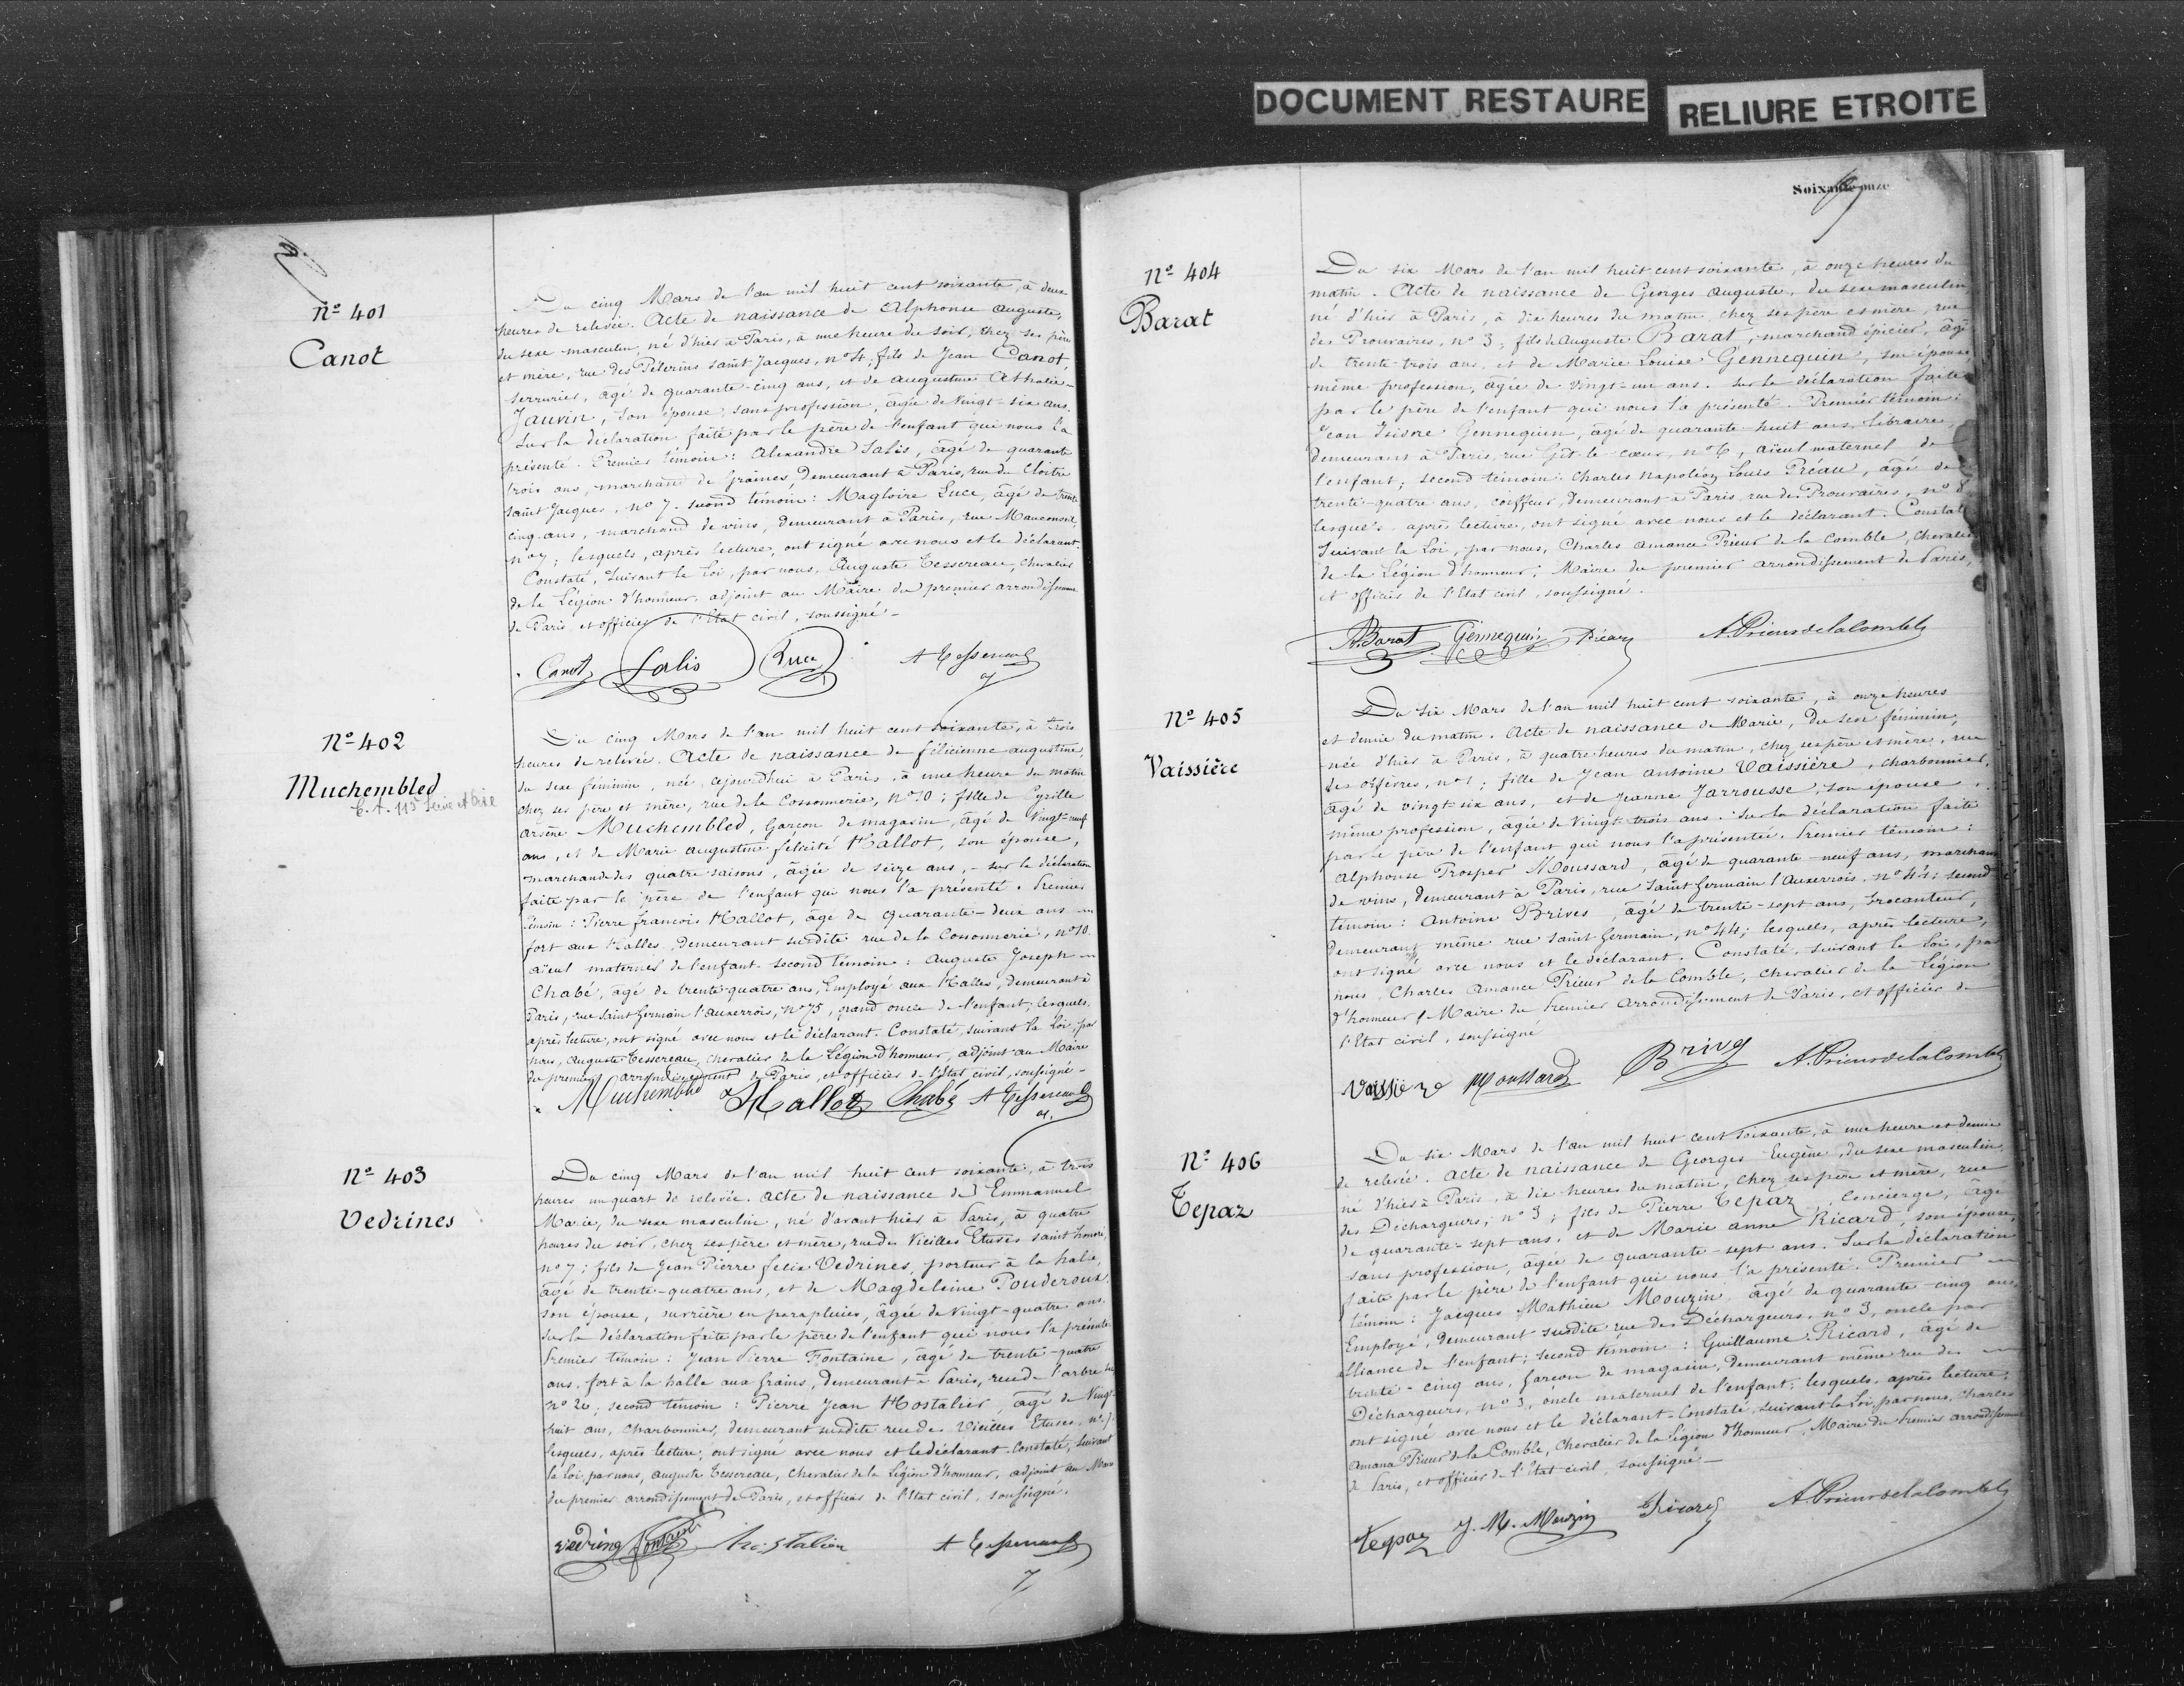 DOCUMENT RESTAURE
RELIURE ETROITE
Nº 401
Canot
Du cinq Mars de l'an mil huit cent soixante, à deux
heures de relevée. Acte de naissance de Alphonse Auguste,
du sexe masculin, né d'hier à Paris, à une heure du soir, chez ses père
et mère, rue des Pélerins saint Jacques, nº 4, fils de Jean Canot,
serrurier, âgé de quarante-cinq ans, et de augustine Athalie
Jauvin, son épouse, sans profession, âgée de vingt-six ans.
Sur la déclaration faite par le père de l'enfant qui nous l'a
présenté. Premier témoin: Alexandre Salis, âgé de quarante
trois ans, marchand de graines, demeurant à Paris, rue du Cloitre
saint Jacques, nº 7. second témoin: Magloire Luce, âgé de trente
cinq ans, marchand de vins, demeurant à Paris, rue Mauconseil,
nº 7; lesquels, après lecture, ont signé avec nous et le déclarant.
Constaté, suivant la loi, par nous, Auguste Tessereau, chevalier
de la Légion d'honneur, adjoint au Maire du premier arrondissement
de Paris et officier de l'Etat civil, soussigné -
Canot Salis Luce A Tessereau
Nº 402
Muchembled
Du cinq Mars de l'an mil huit cent soixante, à trois
heures de relevée. Acte de naissance de félicienne augustine,
du sexe féminin, née, cejourd'hui à Paris, à une heure du matin
chez ses père et mère, rue de la Cossonnerie, nº 10; fille de Cyrille
arsène Muchembled, Garçon de magasin, âgé de vingt-neuf
ans, et de Marie augustine félicité Hallot, son épouse,
marchande des quatre saisons, âgée de seize ans, - sur la déclaration
faite par le père de l'enfant qui nous l'a présenté. Premier
témoin: Pierre françois Hallot, âgé de quarante-deux ans
fort aux halles, demeurant susdite rue de la Cossonnerie, nº 10.
aïeul maternel de l'enfant. second témoin: Auguste Joseph
Chabé, âgé de trente quatre ans, Employé aux Halles, demeurant à
Paris, rue Saint Germain l'auxerrois, nº 75, grand oncle de l'enfant; lesquels,
après lecture, ont signé avec nous et le déclarant. Constaté, suivant la loi, par
nous, Auguste Tessereau, chevalier de la Légion d'honneur, adjoint au Maire
du premier arrondissement de Paris, et officier de l'état civil, soussigné -
Muchembled Hallot Chabé A Tessereau
Nº 403
Vedrines
Du cinq Mars de l'an mil huit cent soixante, à trois
heures un quart de relevée. acte de naissance de Emmanuel
Marie, du sexe masculin, né d'avant hier à Paris, à quatre
heures du soir, chez ses père et mère, rue des Vieilles Etuves saint honoré,
nº 7; fils de Jean Pierre felix Vedrines, porteur à la halle,
âgé de trente-quatre ans, et de Magdeleine Pouderoux,
son épouse, ouvrière en parapluies, âgée de vingt-quatre ans.
sur la déclaration faite par le père de l'enfant qui nous l'a présenté.
Premier témoin: Jean Pierre Fontaine, âgé de trente-quatre
ans, fort à la halle aux grains, demeurant à Paris, rue de l'arbre sec
nº 26, second témoin: Pierre Jean Hostalier, âgé de vingt-
huit ans, charbonnier, demeurant susdite rue des Vieilles Etuves, nº 7.
lesquels, après lecture, ont signé avec nous et le déclarant. Constaté, suivant
la loi, par nous, auguste Tessereau, chevalier de la Légion d'honneur, adjoint au Maire
du premier arrondissement de Paris, et officier de l'état civil, soussigné.
vedrines Fontaine hostalier A Tessereau
Soixante-onze
Nº 404
Barat
Du six Mars de l'an mil huit cent soixante, à onze heures du
matin. Acte de naissance de Georges Auguste, du sexe masculin,
né d'hier à Paris, à dix heures du matin, chez ses père et mère, rue
des Prouvaires, nº 3; fils de Auguste Barat, marchand épicier, âgé
de trente-trois ans, et de Marie Louise Gennequin, son épouse,
même profession, âgée de vingt-un ans. Sur la déclaration faite
par le père de l'enfant qui nous l'a présenté. Premier témoin:
Jean Isidore Gennequin, âgé de quarante-huit ans, libraire,
demeurant à Paris, rue Gît le cœur, nº 6, aïeul maternel de
l'enfant; second témoin: Charles Napoléon Louis Préau, âgé de
trente-quatre ans, coiffeur, demeurant à Paris, rue des Prouvaires, nº 8
lesquels, après lecture, ont signé avec nous et le déclarant. Constaté
suivant la Loi, par nous, Charles Amance Prieur de la Comble, chevalier
de la Légion d'honneur, Maire du premier arrondissement de Paris,
et officier de l'Etat civil, soussigné.
A. Barat Gennequin Préau A. Prieur de la Comble
Nº 405
Vaissière
Du six Mars de l'an mil huit cent soixante, à onze heures
et demie du matin. Acte de naissance de Marie, du sexe féminin,
née d'hier à Paris, à quatre heures du matin, chez ses père et mère, rue
des orfèvres, nº 1; fille de Jean Antoine Vaissière, charbonnier,
âgé de vingt six ans, et de Jeanne Jarrousse, son épouse,
même profession, âgée de vingt-trois ans. Sur la déclaration faite
par le père de l'enfant qui nous l'a présentée. Premier témoin:
Alphonse Prosper Moussard, âgé de quarante-neuf ans, marchand
de vins, demeurant à Paris, rue Saint Germain l'Auxerrois, nº 41; second
témoin: Antoine Brives, âgé de trente-sept ans, brocanteur,
demeurant même rue saint Germain, nº 44; lesquels, après lecture,
ont signé avec nous et le déclarant. Constaté, suivant la loi, par
nous, Charles Amance Prieur de la Comble, chevalier de la Légion
d'honneur, Maire du Premier arrondissement de Paris, et officier de
l'Etat civil, soussigné
Vaissière Moussard Brives A. Prieur de la Comble
Nº 406
Tepaz
Du six Mars de l'an mil huit cent soixante, à une heure et demie
de relevée. Acte de naissance de Georges Eugène, du sexe masculin,
né d'hier à Paris, à dix heures du matin, chez ses père et mère, rue
des Déchargeurs, nº 3; fils de Pierre Tepaz, Concierge, âgé
de quarante-sept ans, et de Marie anne Ricard, son épouse,
sans profession, âgée de quarante-sept ans. Sur la déclaration
faite par le père de l'enfant qui nous l'a présenté. Premier
témoin: Jacques Mathieu Mouzin, âgé de quarante cinq ans,
Employé, demeurant susdite rue des Déchargeurs, nº 3, oncle par
alliance de l'enfant; second témoin: Guillaume Ricard, âgé de
trente-cinq ans, garçon de magasin, demeurant même rue des
Déchargeurs, nº 3, oncle maternel de l'enfant; lesquels, après lecture,
ont signé avec nous et le déclarant. Constaté, suivant la Loi, par nous, Charles
Amance Prieur de la Comble, Chevalier de la Légion d'honneur, Maire du Premier arrondissement
de Paris, et officier de l'Etat civil, soussigné -
Tepaz J. M. Mouzin Ricard A. Prieur de la Comble